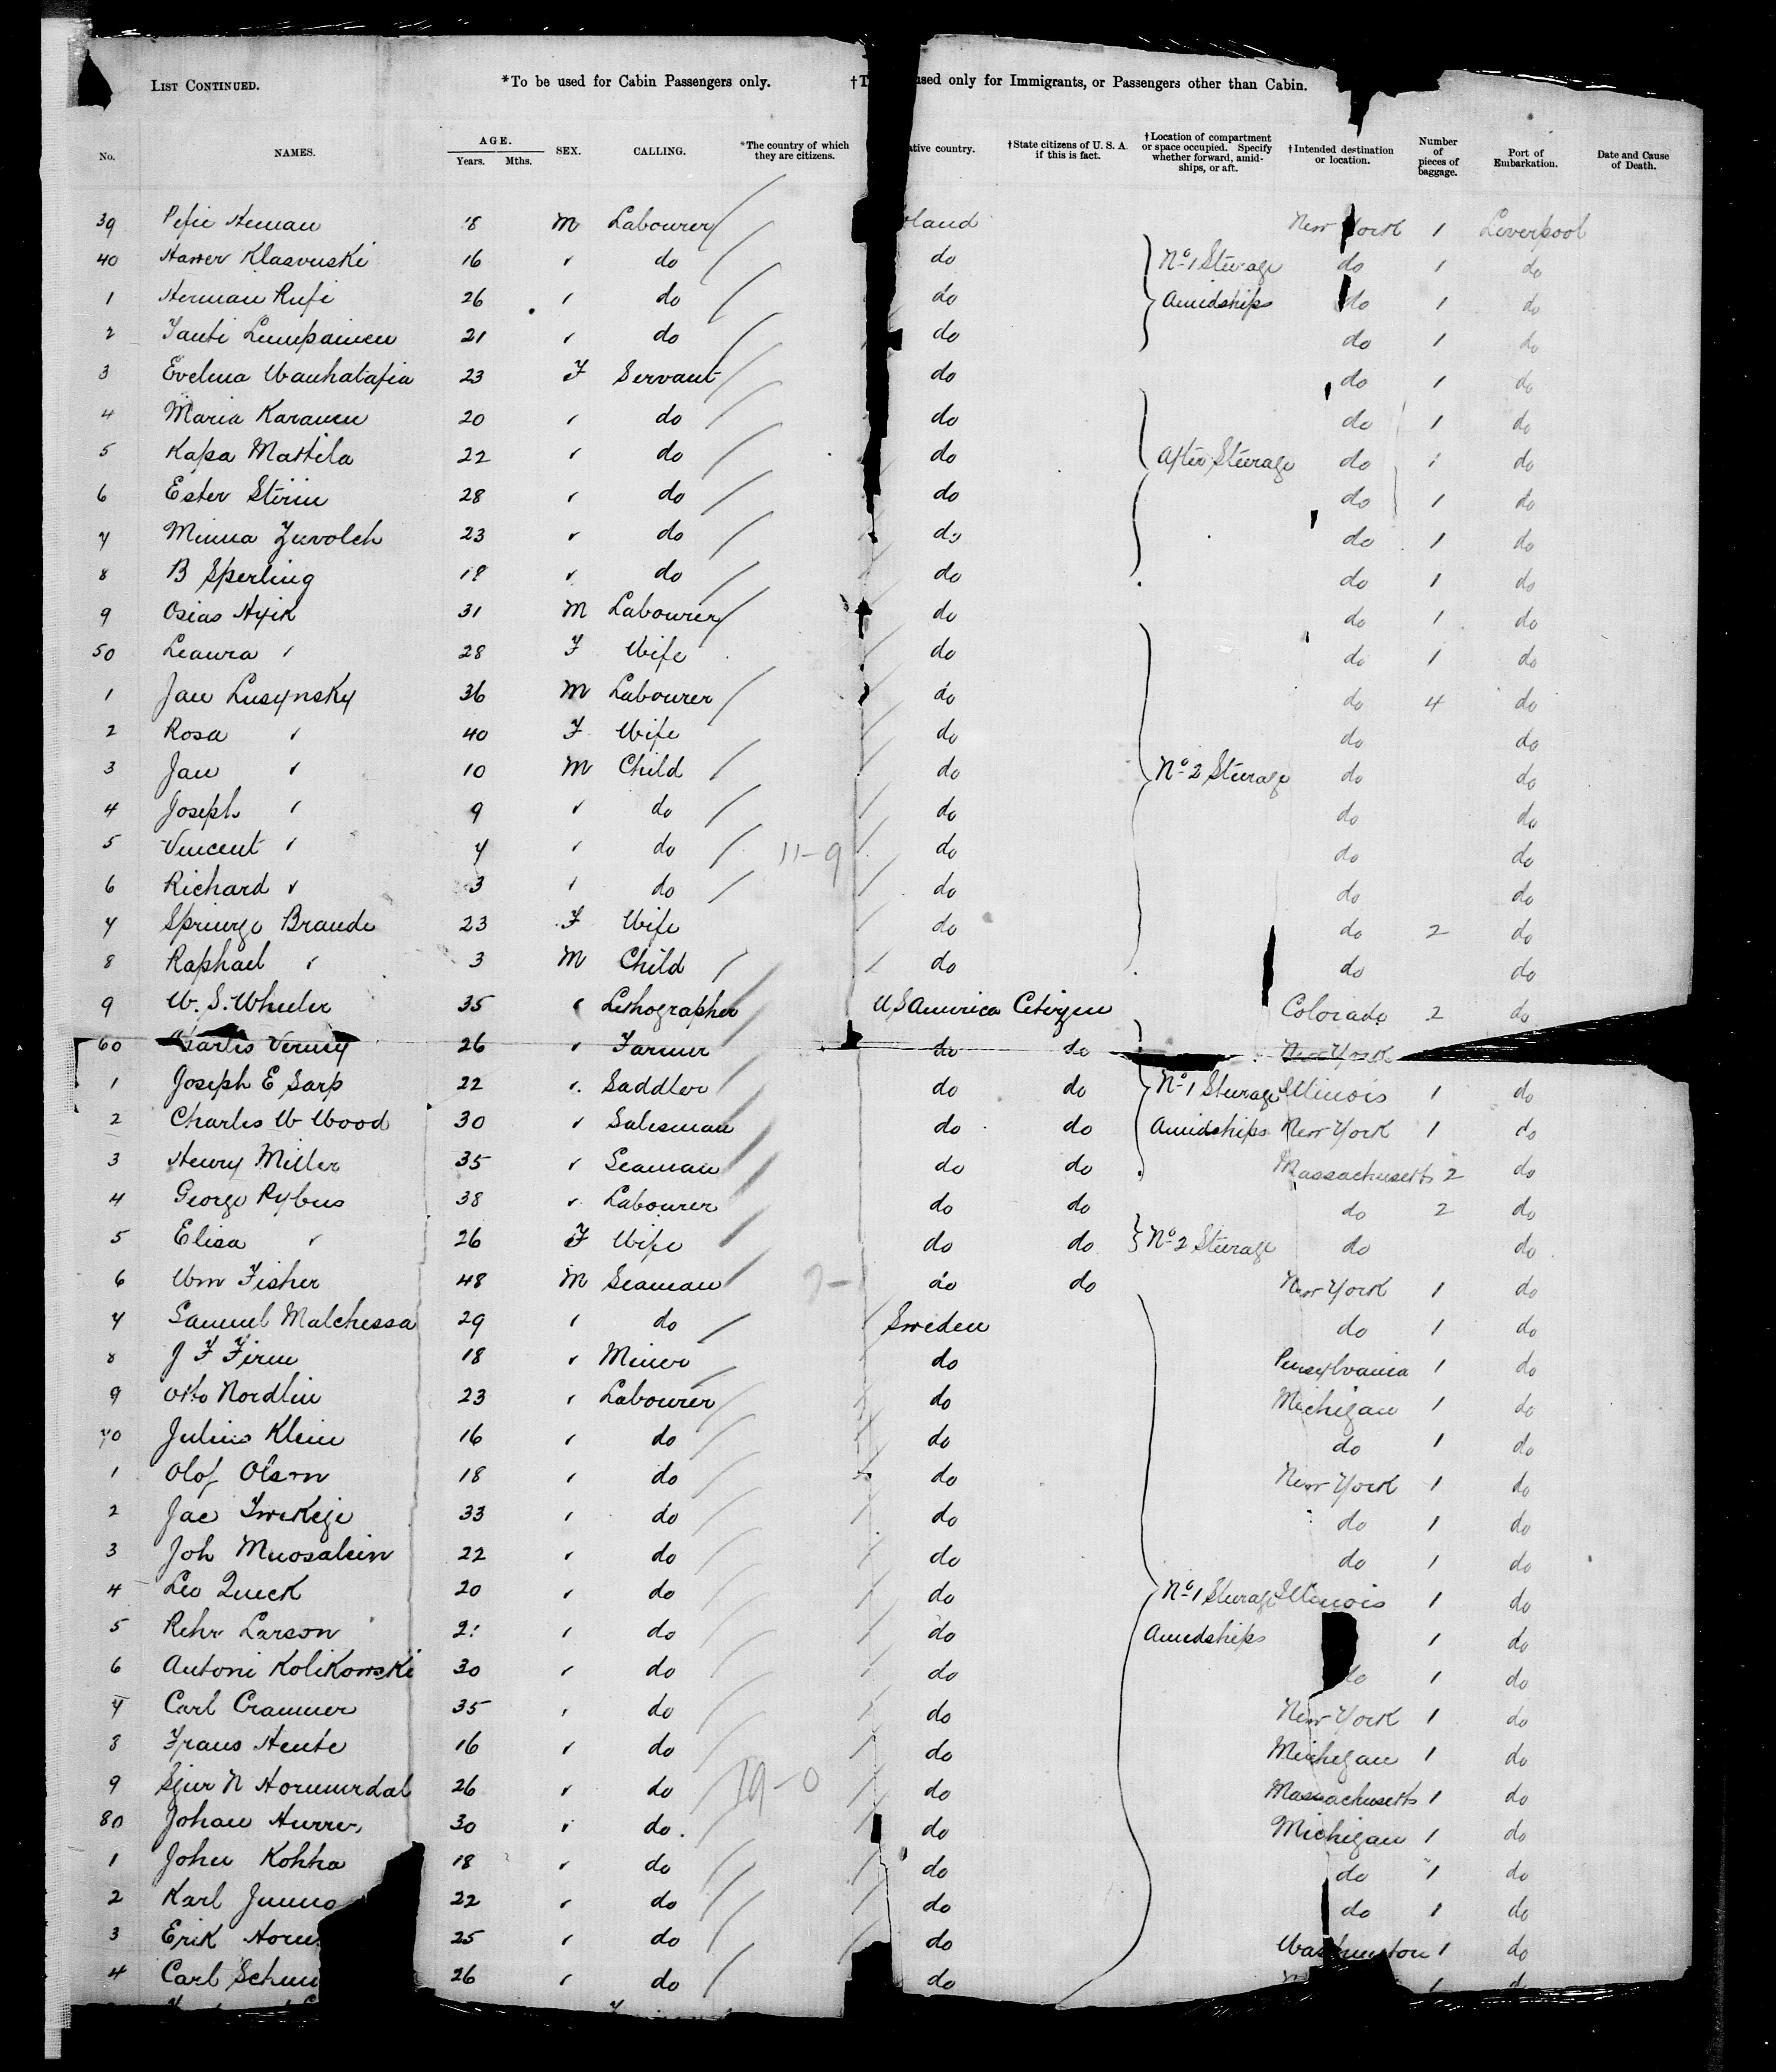 LIST CONTINUED. *To be used for Cabin Passengers only. used only for Immigrants, or Passengers other than Cabin.
No. NAMES. AGE. Years. Mths. SEX. CALLING. *The country of which they are citizens. country. †State citizens of U. S. A. if this is fact. †Location of compartment or space occupied. Specify whether forward, amidships, or aft. †Intended destination or location. Number of pieces of baggage. Port of Embarkation. Date and Cause of Death.
39 Heman 18 M Labourer New York 1 Liverpool
40 Klasvuski 16 " do do No 1 Steerage do 1 do
1 Herman Rufi 26 " do do Amidships do 1 do
2 Lumpainen 21 " do do do 1 do
3 Evelina 23 F Servant do do 1 do
4 Maria Karanen 20 " do do do 1 do
5 Kapa Mattila 22 " do do After Steerage do 1 do
6 Ester 28 " do do do 1 do
7 Minna 23 " do do do 1 do
8 B Sperling " do do do 1 do
9 Osias 31 M Labourer do do 1 do
50 Leaura " 28 F Wife do do 1 do
1 Jan Lusynsky 36 M Labourer do do 4 do
2 Rosa " 40 F Wife do do do
3 Jan " 10 M Child do No 2 Steerage do do
4 Joseph " 9 " do do do do
5 Vincent " 7 " do 11-9 do do do
6 Richard " 3 " do do do do
7 Braude 23 F Wife do do 2 do
8 Raphael " 3 M Child do do do
9 W. S. Wheeler 35 " Lithographer U S America Citizen Colorado 2 do
60 Charles 26 " Farmer do do New York
1 Joseph E Sarp 22 " Saddler do do No 1 Steerage Illinois 1 do
2 Charles W Wood 30 " Salesman do do Amidships New York 1 do
3 Henry Miller 35 " Seaman do do Massachusetts 2 do
4 George Rybus 38 " Labourer do do do 2 do
5 Elisa " 26 F Wife do do No 2 Steerage do do
6 Wm Fisher 48 M Seaman do do New York 1 do
7 Samuel Malchessa 29 " do Sweden do 1 do
8 J F 18 " Miner do Pensylvania 1 do
9 Otto Nordlin 23 " Labourer do Michigan 1 do
70 Julius Klein 16 " do do do 1 do
1 Olof Olson 18 " do do New York 1 do
2 33 " do do do 1 do
3 Joh 22 " do do do 1 do
4 Leo Queck 20 " do do No 1 Steerage Illinois 1 do
5 Larson " do do Amidships 1 do
6 Antoni Kolikowski 30 " do do do 1 do
7 Carl Crammer 35 " do do New York 1 do
8 Frans 16 " do do Michigan 1 do
9 N 26 " do 19-0 do Massachusetts 1 do
80 Johan 30 " do do Michigan 1 do
1 John Kohha 18 " do do do 1 do
2 Karl 22 " do do do 1 do
3 Erik 25 " do do Washington 1 do
4 Carl 26 " do do 1 do